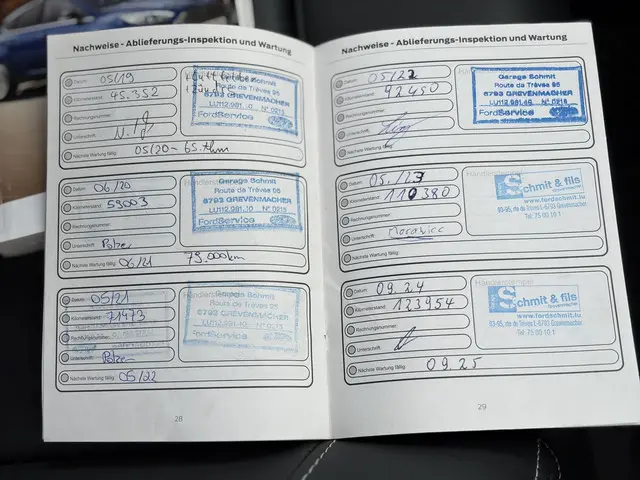 Nachweise - Ablieferungs-Inspektion und Wartung
Datum: 05/19
Kilometerstand: 45.352
Rechnungsnummer:
Unterschrift:
Nächste Wartung fällig: 05/20 - 65.Thm
Garage Schmit
Route de Trèves 95
6792 GREVENMACHER
LU112.981.10 N° 0218
FordService
Datum: 06/20
Kilometerstand: 59003
Rechnungsnummer:
Unterschrift:
Nächste Wartung fällig: 06/21 79.000km
Garage Schmit
Route de Trèves 95
6792 GREVENMACHER
LU112.981.10 N° 0218
FordService
Datum: 05/21
Kilometerstand: 71473
Rechnungsnummer:
Unterschrift:
Nächste Wartung fällig: 05/22
Garage Schmit
Route de Trèves 95
6792 GREVENMACHER
LU112.981.10 N° 0218
FordService
28
Nachweise - Ablieferungs-Inspektion und Wartung
Datum: 05/22
Kilometerstand: 92450
Rechnungsnummer:
Unterschrift:
Nächste Wartung fällig:
Garage Schmit
Route de Trèves 95
6793 GREVENMACHER
LU112.981.10 N° 0218
FordService
Datum: 05/23
Kilometerstand: 110380
Rechnungsnummer:
Unterschrift:
Nächste Wartung fällig:
Händlerstempel
Schmit & fils
www.fordschmit.lu
93-95, rte de Trèves L-6793 Grevenmacher
Tel: 75 00 10 1
Datum: 09.24
Kilometerstand: 123954
Rechnungsnummer:
Unterschrift:
Nächste Wartung fällig: 09.25
Händlerstempel
Schmit & fils
www.fordschmit.lu
93-95, rte de Trèves L-6793 Grevenmacher
Tel: 75 00 10 1
29